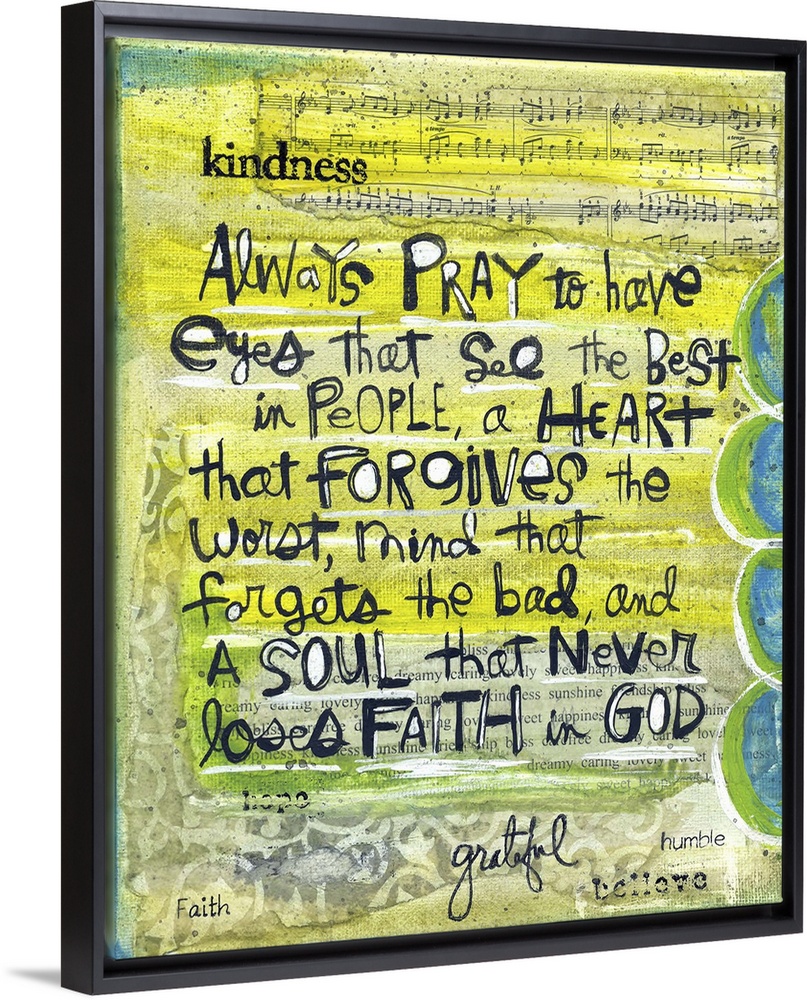 kindness
Always PRAY to have
eyes that see the Best
in PEOPLE, a HEART
that FORGIVES the
worst, mind that
forgets the bad, and
A SOUL that Never
loses FAITH in GOD
bliss
dreamy caring lovely sweet happiness
kindness sunshine
dreamy caring lovely sweet
hope
grateful
humble
believe
Faith